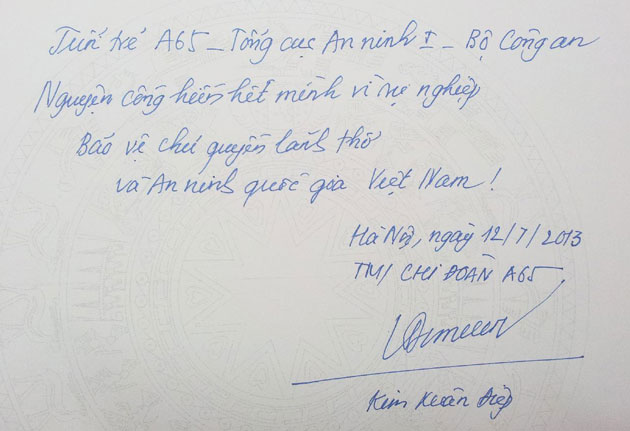 Tuổi trẻ A65 - Tổng cục An ninh I - Bộ Công an
Nguyện cống hiến hết mình vì sự nghiệp
Bảo vệ chủ quyền lãnh thổ
và An ninh quốc gia Việt Nam!
Hà Nội, ngày 12/7/2013
TM/ CHI ĐOÀN A65
Kim Xuân Điệp